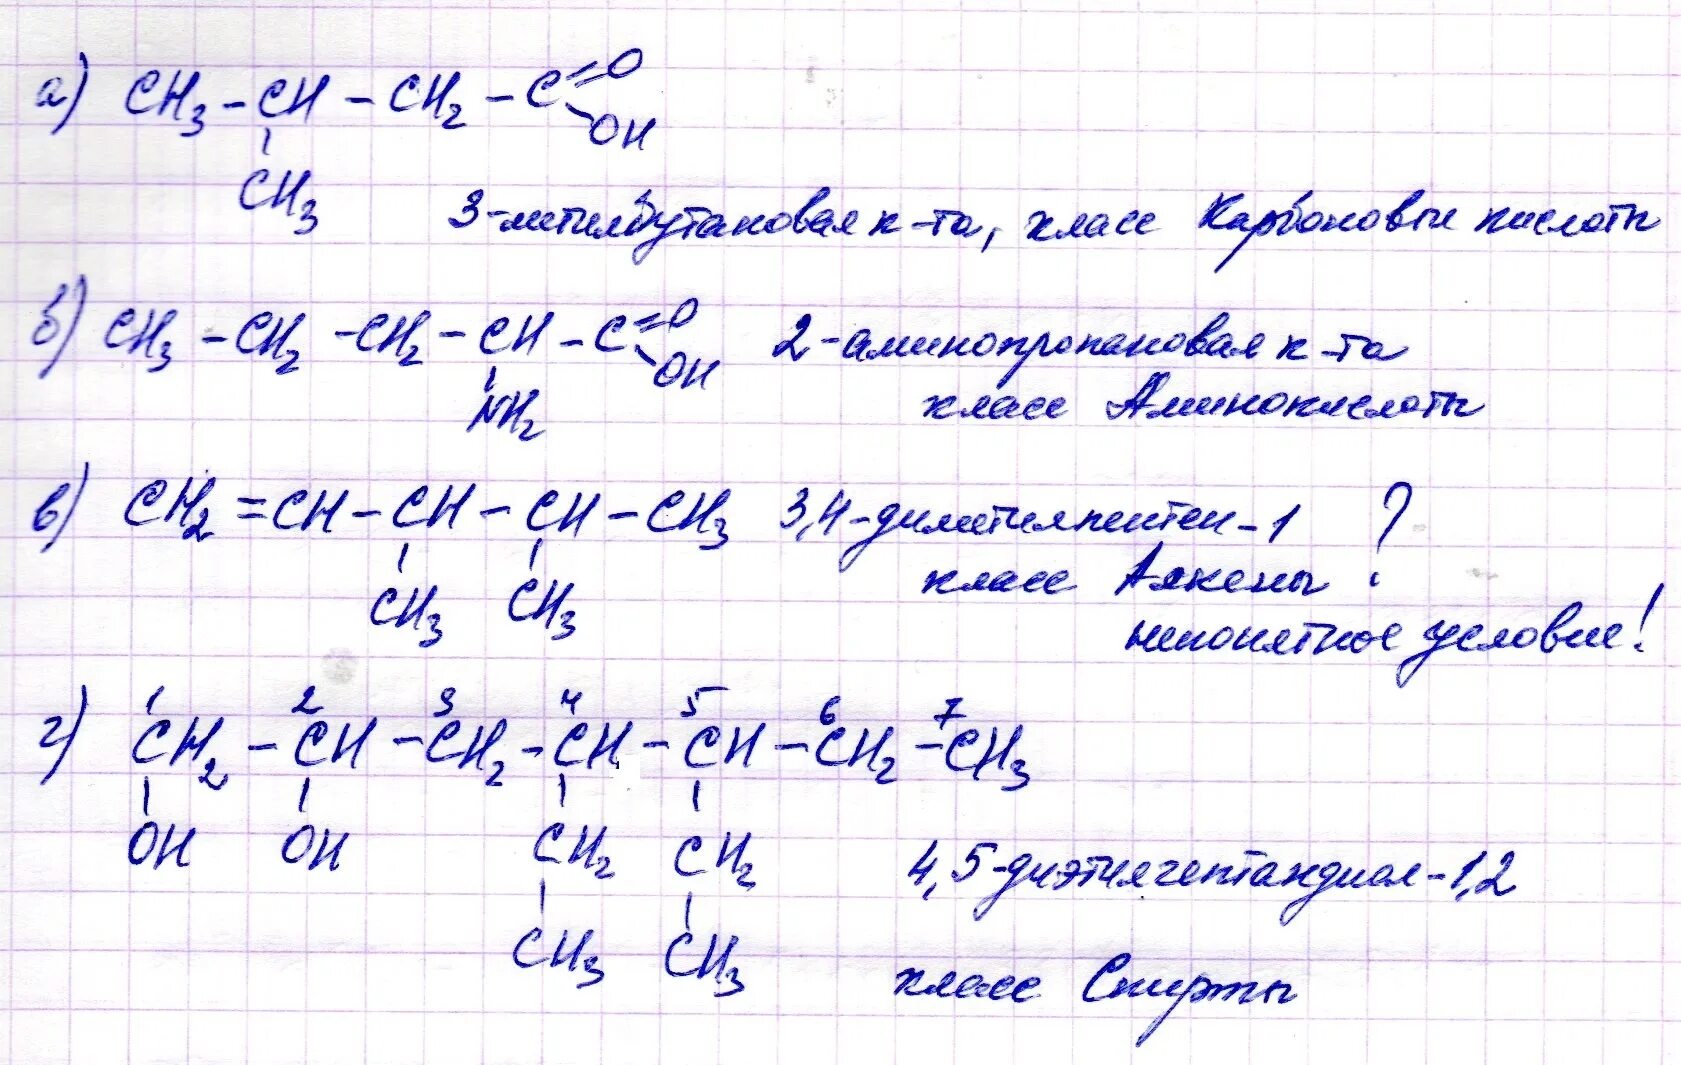 а) CH3 – CH – CH2 – C =O
OH
CH3
3-метилбутановая к-та, класс Карбоновые кислоты
б) CH3 – CH2 – CH2 – CH – C =O
OH
NH2
2-аминопропановая к-та
класс Аминокислоты
в) CH2 = CH – CH – CH – CH3
CH3 CH3
3,4-диметилпентен-1 ?
класс Алкены
непонятное условие!
1 2 3 4 5 6 7
г) CH2 – CH – CH2 – CH – CH – CH2 – CH3
OH OH CH2 CH2
CH3 CH3
4,5-диэтилгептандиол-1,2
класс Спирты